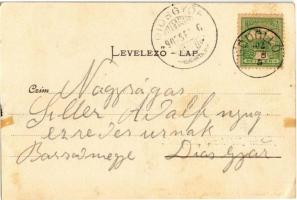 DIÓSGYŐR
LEVELEZŐ - LAP.
Czim Nagyságos
Siller Adolf nyug
ezredes urnak
Borsodmegye Diós Győr